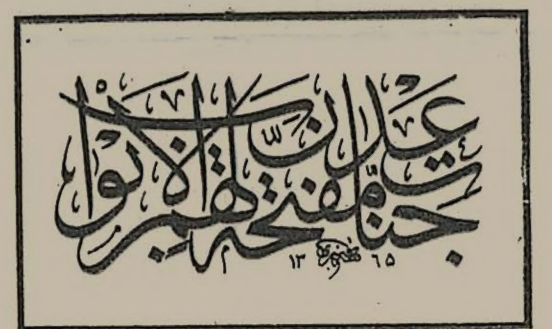 جنات عدن مفتحة لهم الابواب
١٣ ٦٥